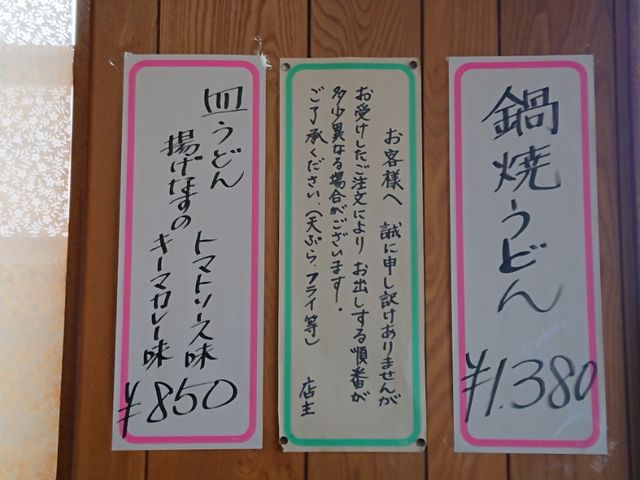 鍋焼うどん
¥1.380
お客様へ 誠に申し訳けありませんが
お受けしたご注文により お出しする順番が
多少異なる場合がございます。
ご了承ください.(天ぷら、フライ等)
店主
皿うどん
トマトソース味
揚げなすの
キーマカレー味
¥850